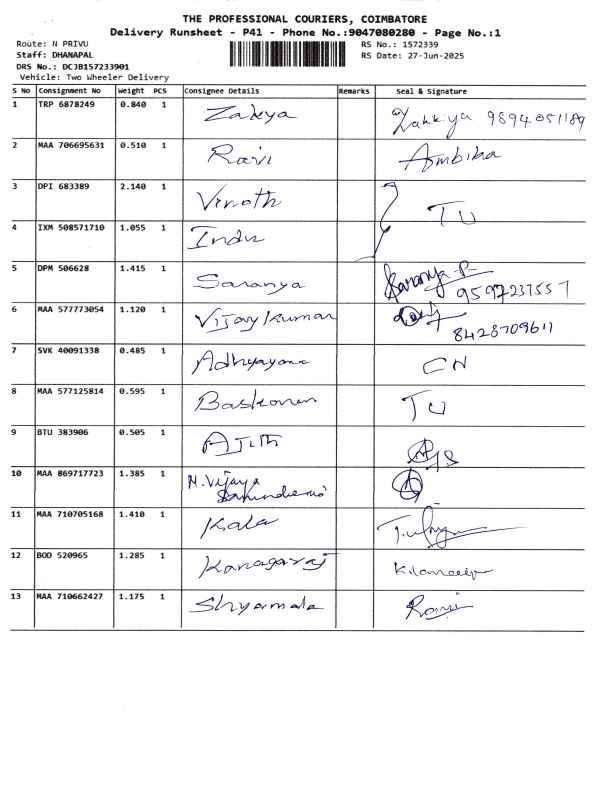 THE PROFESSIONAL COURIERS, COIMBATORE
Delivery Runsheet - P41 - Phone No.:9047080280 - Page No.:1
Route: N PRIVU
Staff: DHANAPAL
DRS No.: DCJB157233901
Vehicle: Two Wheeler Delivery
RS No.: 1572339
RS Date: 27-Jun-2025
S No Consignment No Weight PCS Consignee Details Remarks Seal & Signature
1 TRP 6878249 0.840 1 Zakya Zakkiya 9894051189
2 MAA 706695631 0.510 1 Ravi Ambika
3 DPI 683389 2.140 1 Vinoth TU
4 IXM 508571710 1.055 1 Indu
5 DPM 506628 1.415 1 Saranya Saranya P 9597237557
6 MAA 577773054 1.120 1 Vijay Kumar 8428709611
7 SVK 40091338 0.485 1 Adhyayana CN
8 MAA 577125814 0.595 1 Baskaran TU
9 BTU 383906 0.505 1 Ajith
10 MAA 869717723 1.385 1 N. Vijaya
11 MAA 710705168 1.410 1 Kala
12 BOD 520965 1.285 1 Kanagaraj
13 MAA 710662427 1.175 1 Shyamala